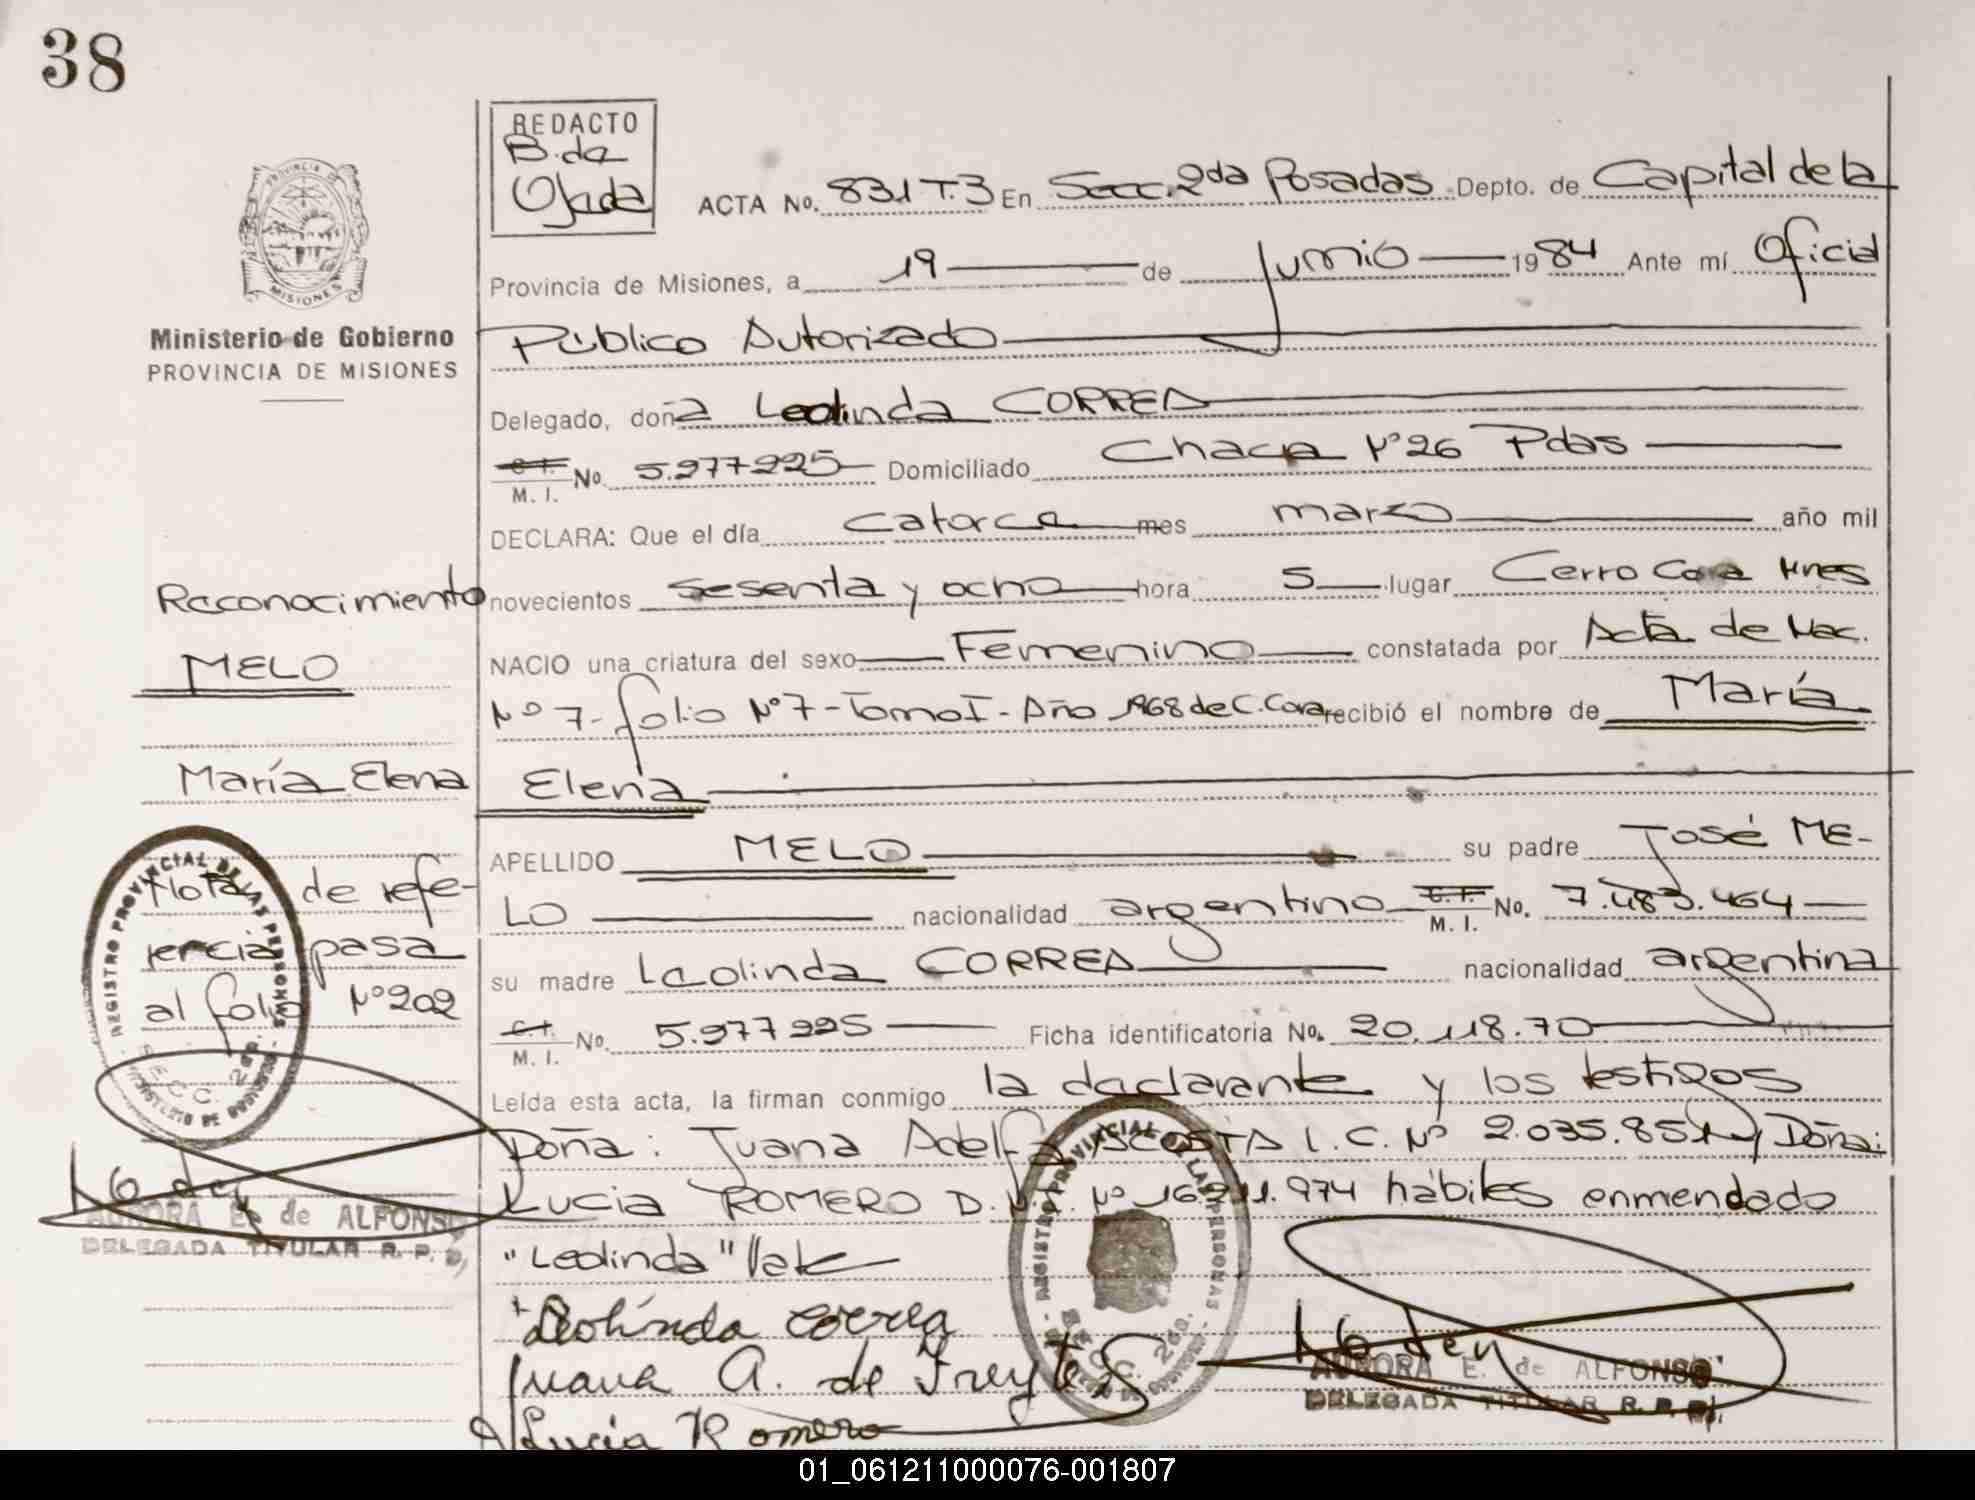 38
REDACTO
B. de
Ojeda
ACTA No. 831 T.3 En Secc. 2da Posadas Depto. de Capital de la
PROVINCIA DE
MISIONES
Provincia de Misiones, a 19 de Junio 1984 Ante mí Oficial
Ministerio de Gobierno
PROVINCIA DE MISIONES
Público Autorizado
Delegado, doña Leolinda CORREA
C. I. M. I. No. 5.977225 Domiciliado Chacra Nº 26 Pdas
DECLARA: Que el día catorce mes marzo año mil
Reconocimiento
novecientos sesenta y ocho hora 5 lugar Cerro Cora Mnes
MELO
NACIO una criatura del sexo Femenino constatada por Acta de Nac.
Nº 7- folio Nº 7 - Tomo I - Año 1968 de C. Cora recibió el nombre de María
María Elena
Elena
APELLIDO MELO su padre José ME-
Nota de refe-
LO nacionalidad argentino C. I. M. I. No. 7.483.464
rencia pasa
su madre Leolinda CORREA nacionalidad argentina
al folio Nº 202
C. I. M. I. No. 5.977225 Ficha identificatoria No. 20.118.70
REGISTRO PROVINCIAL DE LAS PERSONAS
SECC. 2da.
MINISTERIO DE GOBIERNO
Leída esta acta, la firman conmigo la declarante y los testigos
Doña: Juana Adelfa ACOSTA L.C. Nº 2.035.851 y Doña:
Lucia ROMERO D.N.I. Nº 16.211.974 hábiles enmendado
AURORA E. de ALFONSO
DELEGADA TITULAR R. P. P.
"Leolinda" Vale
Leolinda Correa
Juana A. de Freytes
Lucia Romero
REGISTRO PROVINCIAL DE LAS PERSONAS
SECC. 2da.
AURORA E. de ALFONSO
DELEGADA TITULAR R. P. P.
01_061211000076-001807